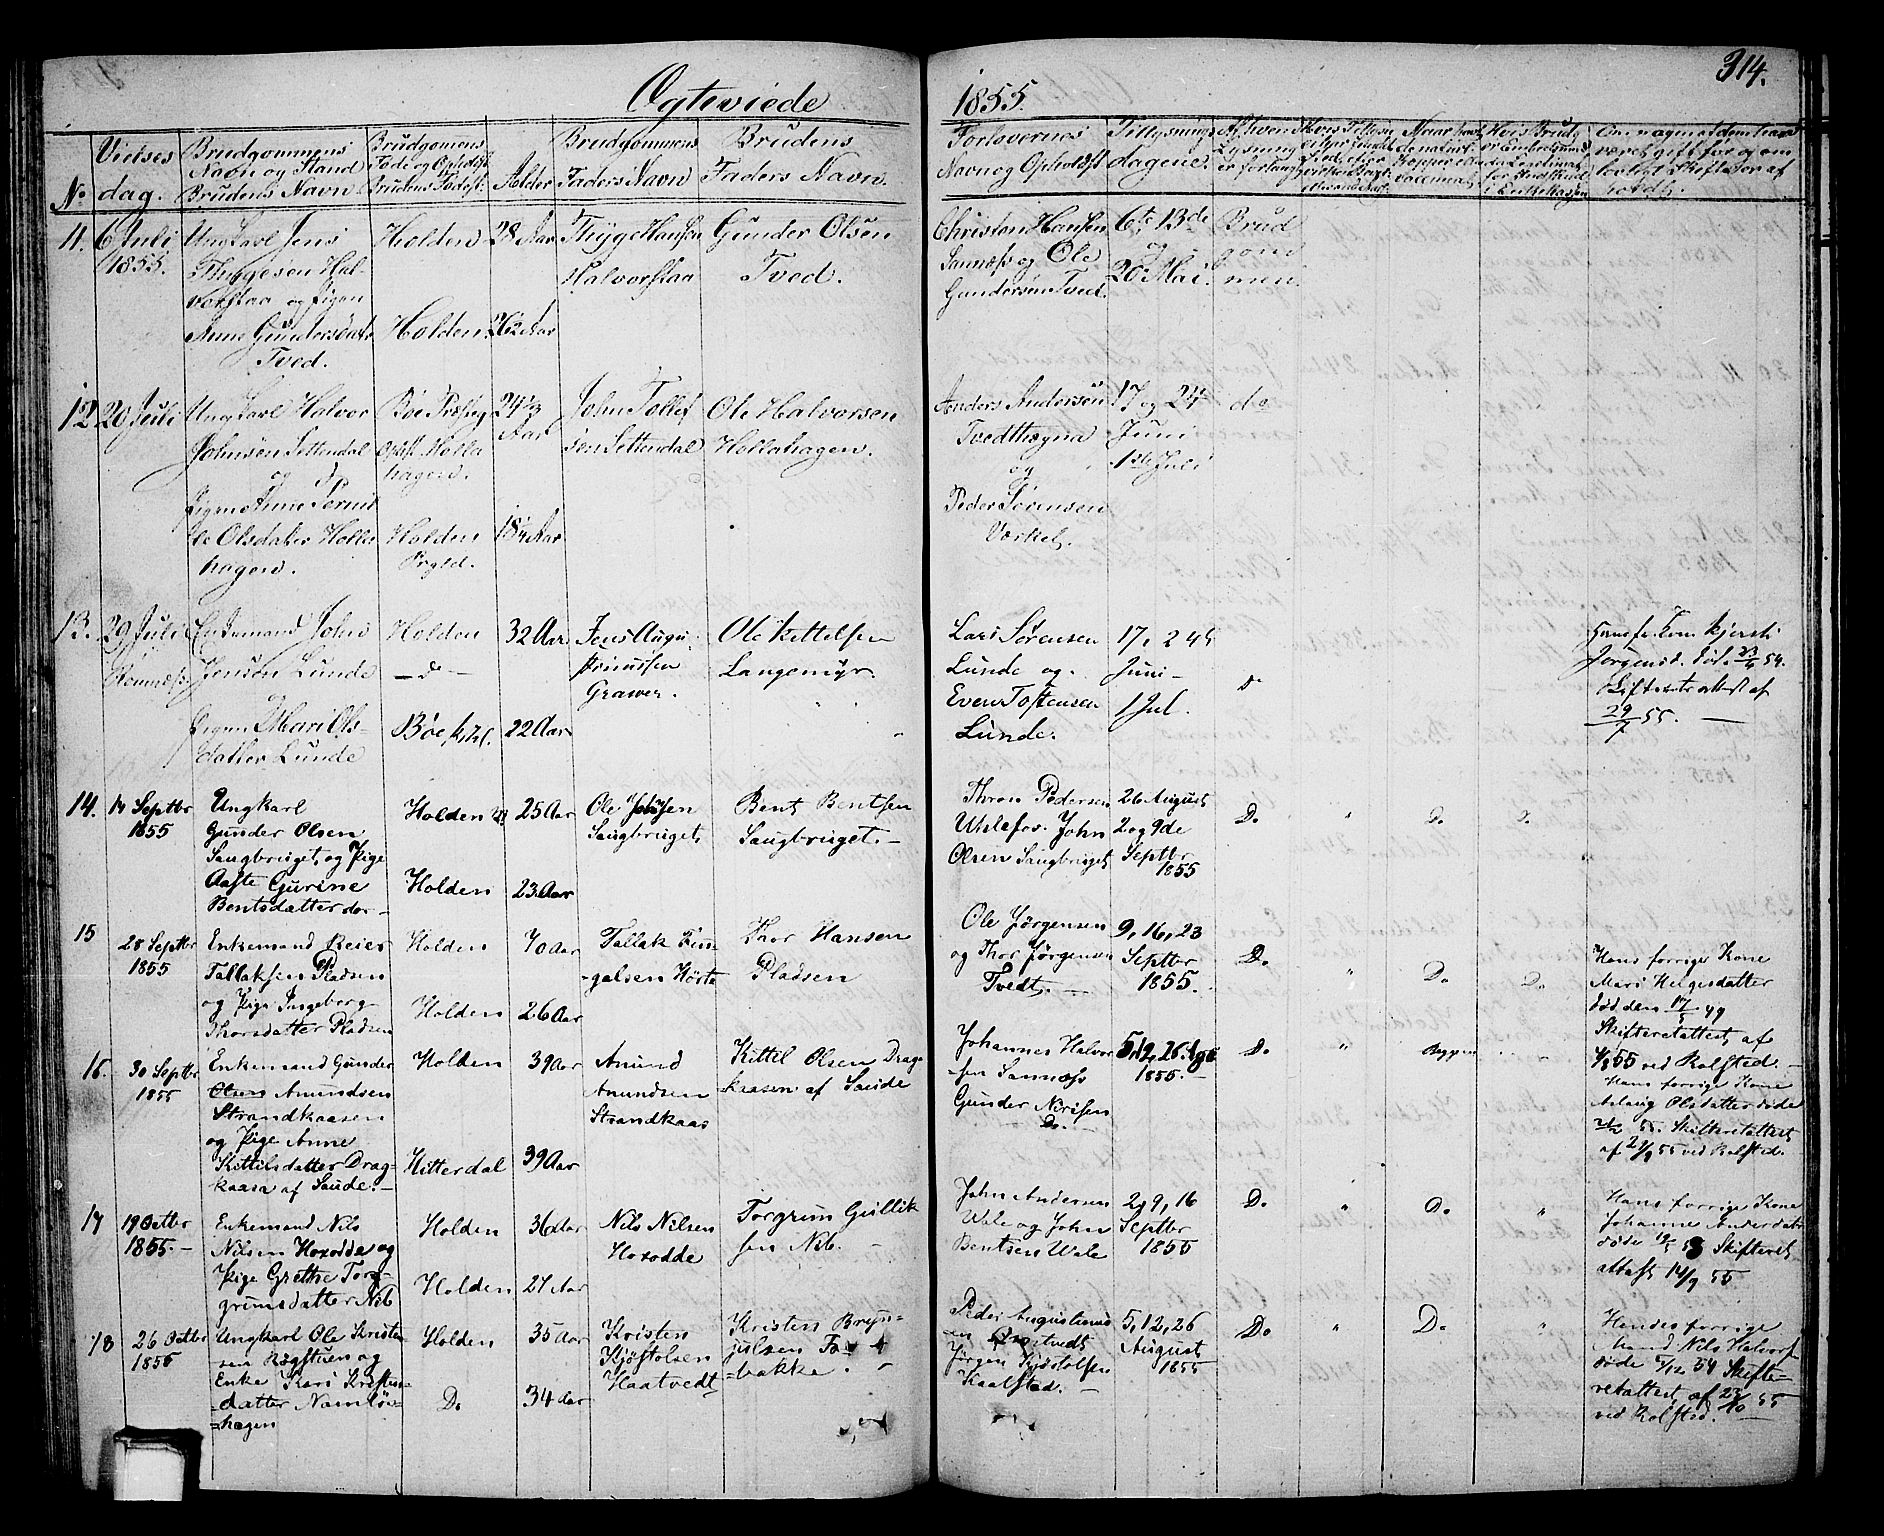 Ogteviede
1855.
314.
No
Vielses
dag.
Brudgommens
Navn og Stand
Brudens Navn
Brudgomens
Brudens Fødest.
Alder
Brudgommens
Faders Navn
Brudens
Faders Navn.
Forlovernes
Navn og Opholdst
Tillysnings
dagene.
Lysning
er forlangt
11.
6 Juli
1855.
Ungkarl Jens
Thygesen Hal-
vorstaa og Pigen
Anne Gundersdatr
Tved.
Holden
Holden.
28 Aar
26½ Aar
Thyge Hansen
Halvorstaa
Gunder Olsen
Tved.
Christen Hansen
Sannæs og Ole
Gundersen Tved.
6te 13de
20 Mai.
Brud
gom
men
12
20 Juli
Ungkarl Halvor
Johnsen Settendal
og
Pigen Anne Pernil
le Olsdatter Holla
hagen.
Bøe Præsteg
Opst. Holla
hagen.
Holden
Prgld.
24⅓
Aar
18¼ Aar
John Tollef
sen Settendal
Ole Halvorsen
Hollahagen.
Anders Andersen
Tvedthægna
og
Peder Sørensen
Værket.
17 og 24
Juni
1ste Juli
do
13.
29 Juli
Romnæs
Enkemand John
Jensen Lunde
og
Pigen Mari Ols-
datter Lunde
Holden
- d -
Bøe
32 Aar
22 Aar
Jens Augu
stinussen
Graver.
Ole Kittelsen
Langemyr.
Lars Sørensen
Lunde og
Even Tostensen
Lunde.
17, 24
Juni
1 Jul.
do
Hans fr. Kone Kjersti
Jørgensd. død. 23/6 54.
Skifteretsattest af
29/7 55.
14.
14 Septbr
1855
Ungkarl
Gunder Olsen
Saugbruget, og Pige
Aaste Gurine
Bentsdatter do
Holden
Holden
25 Aar
23 Aar
Ole Johnsen
Saugbruget,
Bent Bentsen
Saugbruget.
Thron Pedersen
Uhlefos. John
Olsen Saugbruget,
26 August
2 og 9de
Septbr
1855
Do
"
Do
Do
15
28 Septbr
1855
Enkemand Reier
Tallaksen Pladsen
og Pige Ingeborg
Thorsdatter Pladsen
Holden
Holden
70 Aar
26 Aar
Tallak Fin
galsen Hørte
Thor Hansen
Pladsen
Ole Jørgensen
og Thor Jørgensen
Tvedt.
9, 16, 23
Septbr
1855.
Do
"
Do
Do
Hans forrige Kone
Mari Helgesdatter
død den 17/5 49
Skifteretattest, af
4/8 55 ved Rolfsted.
16.
30 Septbr
1855
Enkemand Gunder
Olsen Amundsen
Strandkaasen
og Pige Anne
Kittilsdatter Drag-
kaasa af Saude.
Holden
Hitterdal
39 Aar
39 Aar
Amund
Amundsen
Strandkaas
Kittil Olsen Drag
kaasen af Saude
Johannes Halvor
sen Sannæss
Gunder Nirisen
Do.
5, 12, 26 Aug
1855.
Do
"
Kopper
Hans forrige Kone
Aslaug Olsdatter døde
55. Skifteretattest
af 21/9 55 ved Rolfsted.
17
19 Octbr
1855.
Enkemand Nils
Nilsen Hoxodde og
Pige Grethe Tor-
grimsdatter Nib
Holden
Holden
36 Aar
27 Aar
Nils Nilsen
Hoxodde
Torgrim Gullik
sen Nib.
John Andersen
Wale og John
Bentsen Wale
2, 9, 16
Septbr
1855
Do
"
Do
"
Hans forrige Kone
Johanne Andersdatr
døde Skifteret
attest 14/9 55
18
26 Octbr
1855
Ungkarl Ole Kriste-
sen Rigstuen og
Enke Kari Kristens-
datter Namløs-
hagen
Holden
Do
35 Aar
34 Aar
Kristen
Kjøstolsen
Haatvedt
Kristen Bryn-
julsen
bakka.
Peder Augustinus
en tvedt
Jørgen Kjøstolsen
Kaalstad.
5, 12, 26
August
1855
Do
"
Do
"
Hendes forrige
Mand Nils Halvors
døde 5/12 54 Skifte-
retattest, af 23/10 55
ved Rolfsted.